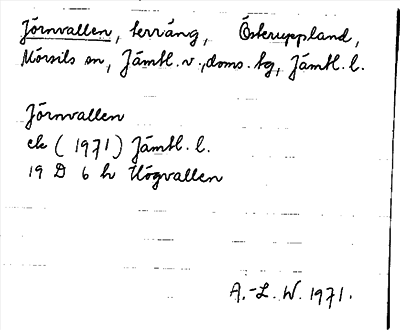 Jörnvallen, terräng, Österuppland,
Mörsils sn, Jämtl. v., doms. tg, Jämtl. l.
Jörnvallen
ek (1971) Jämtl. l.
19 D 6 h Högvallen
A.-L. W. 1971.